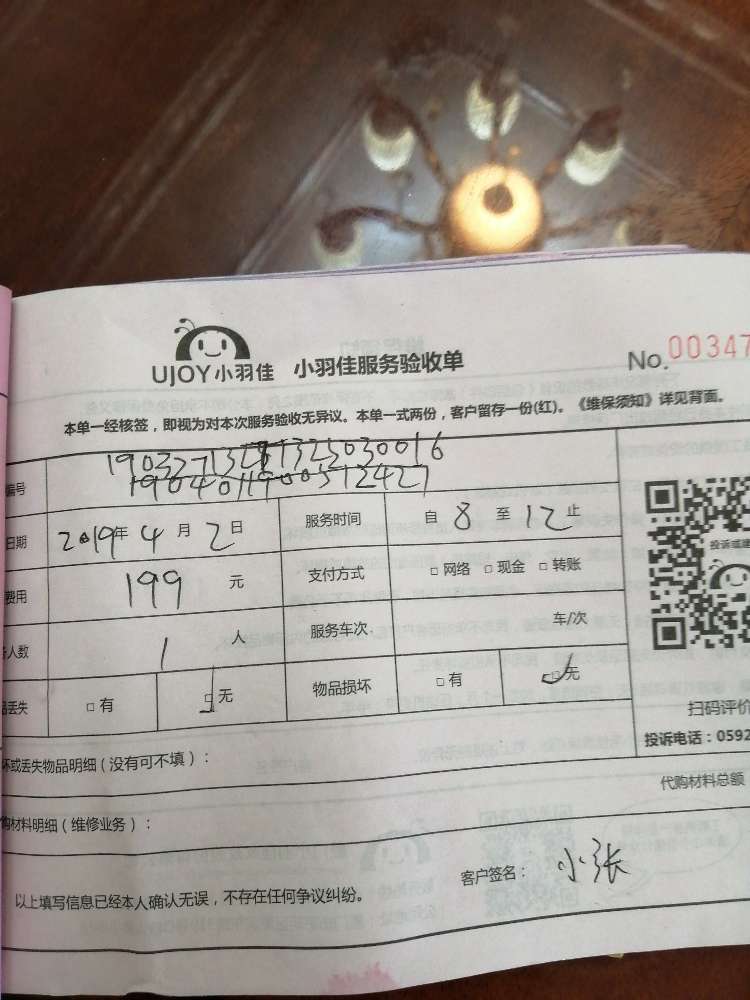 UJOY小羽佳 小羽佳服务验收单 No.00347
本单一经核签，即视为对本次服务验收无异议。本单一式两份，客户留存一份(红)。《维保须知》详见背面。
编号
19040119000512427
日期 2019年4月2日 服务时间 自8至12止
费用 199元 支付方式 □网络 □现金 □转账
人数 1人 服务车次 车/次
丢失 □有 □无 物品损坏 □有 □无
投诉或建
扫码评价
投诉电话：0592
坏或丢失物品明细（没有可不填）：
代购材料总额
购材料明细（维修业务）：
以上填写信息已经本人确认无误，不存在任何争议纠纷。 客户签名：小张